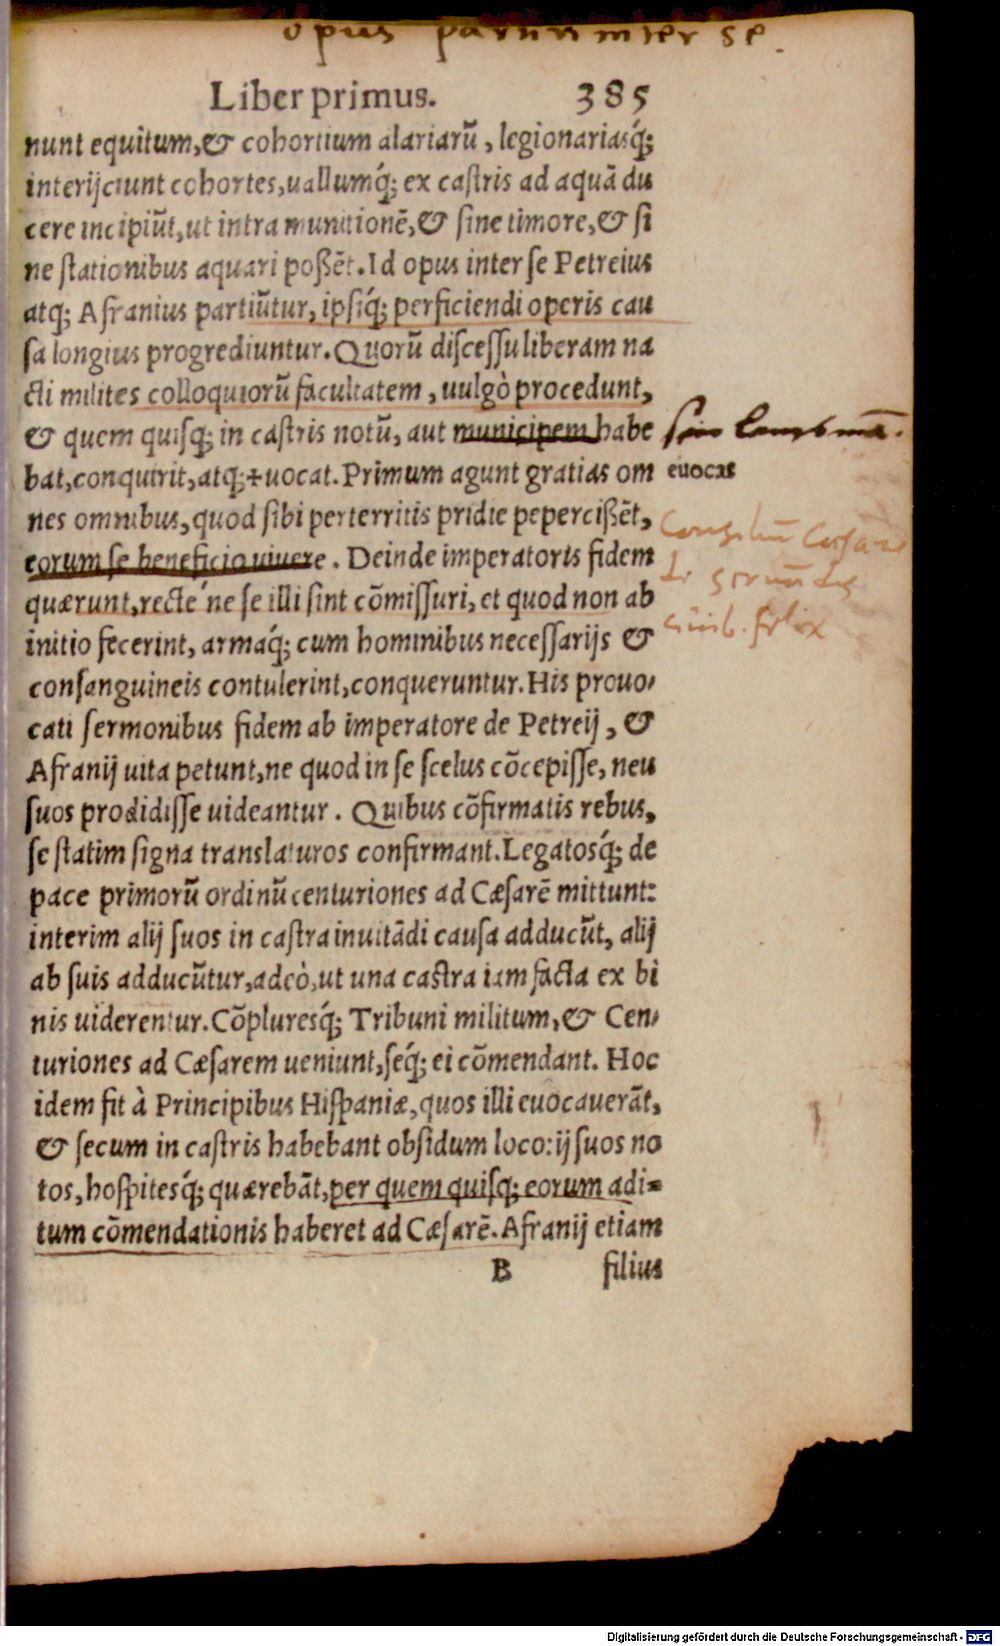 opus partiuntur inter se
Liber primus. 385
nunt equitum, & cohortium alariarũ, legionariasq́;
interijciunt cohortes, uallumq́; ex caſtris ad aquã du
cere incipiũt, ut intra munitionẽ, & ſine timore, & ſi
ne ſtationibus aquari poßẽt. Id opus inter ſe Petreius
atq; Afranius partiũtur, ipſiq́; perficiendi operis cau
ſa longius progrediuntur. Quorũ diſceſſu liberam na
cti milites colloquiorũ facultatem, uulgò procedunt,
& quem quiſq; in caſtris notũ, aut municipem habe
bat, conquirit, atq; + uocat. Primum agunt gratias om
euocat
nes omnibus, quod ſibi perterritis pridie peperciſßẽt,
eorum ſe beneficio uiuere. Deinde imperatoris fidem
quærunt, recte' ne ſe illi ſint cõmiſſuri, et quod non ab
initio fecerint, armaq́; cum hominibus neceſſarijs &
conſanguineis contulerint, conqueruntur. His prouo-
cati ſermonibus fidem ab imperatore de Petreij, &
Afranij uita petunt, ne quod in ſe ſcelus cõcepiſſe, neu
ſuos prodidiſſe uideantur. Quibus cõfirmatis rebus,
ſe ſtatim ſigna translaturos confirmant. Legatosq́; de
pace primorũ ordinũ centuriones ad Cæſarẽ mittunt:
interim alij ſuos in caſtra inuitãdi cauſa adducũt, alij
ab ſuis adducũtur, adeò, ut una caſtra iam facta ex bi
nis uiderentur. Cõpluresq́; Tribuni militum, & Cen-
turiones ad Cæſarem ueniunt, ſeq́; ei cõmendant. Hoc
idem fit à Principibus Hiſpaniæ, quos illi euocauerãt,
& ſecum in caſtris habebant obſidum loco: ij ſuos no
tos, hoſpitesq́; quærebãt, per quem quiſq; eorum adi-
tum cõmendationis haberet ad Cæſarẽ. Afranij etiam
B filius
Digitalisierung gefördert durch die Deutsche Forschungsgemeinschaft - DFG